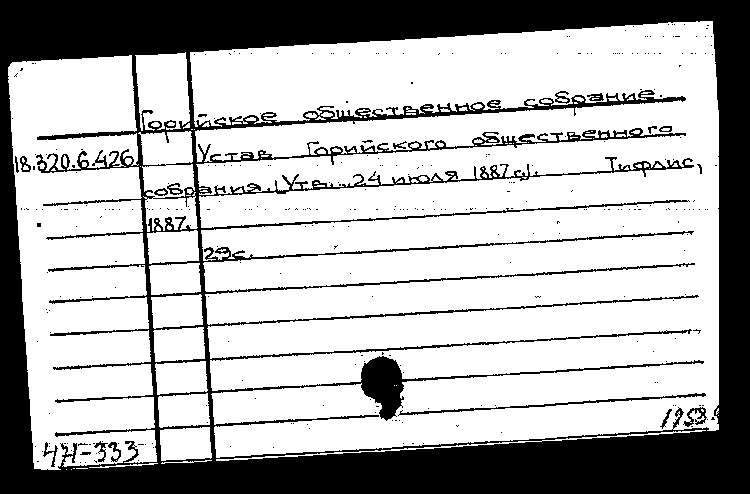 Горийское общественное собрание.
18.320.6.426. Устав Горийского общественного
собрания. [Утв. 24 июля 1887 г.]. Тифлис,
1887.
29с.
471-333 1958